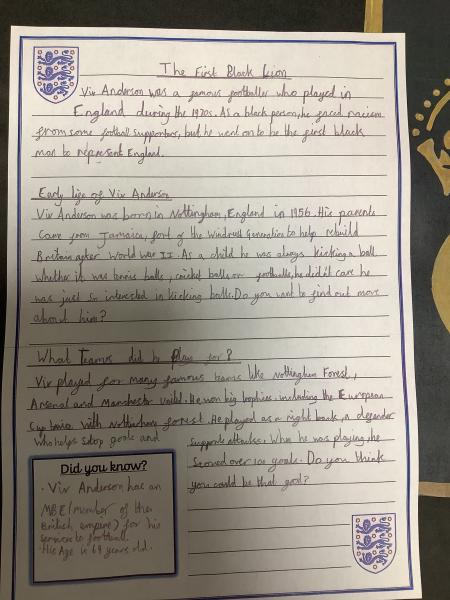 The First Black Lion
Viv Anderson was a famous footballer who played in
England during the 1970s. As a black person, he faced racism
from some football supporters, but he went on to be the first black
man to represent England.
Early life of Viv Anderson
Viv Anderson was born in Nottingham, England in 1956. His parents
came from Jamaica, part of the Windrush Generation to help rebuild
Britain after World War II. As a child he was always kicking a ball
whether it was tennis balls, cricket balls or footballs, he did it care he
was just so interested in kicking balls. Do you want to find out more
about him?
What teams did he play for?
Viv played for many famous teams like Nottingham Forest,
Arsenal and Manchester United. He won big trophies including the European
cup twice with Nottingham forest. He played as a right back, a defender
who helps stop goals and
supports attacks. When he was playing, he
scored over 100 goals. Do you think
you could be that good?
Did you know?
· Viv Anderson has an
MBE (member of the
British empire) for his
services to football.
· His Age is 69 years old.